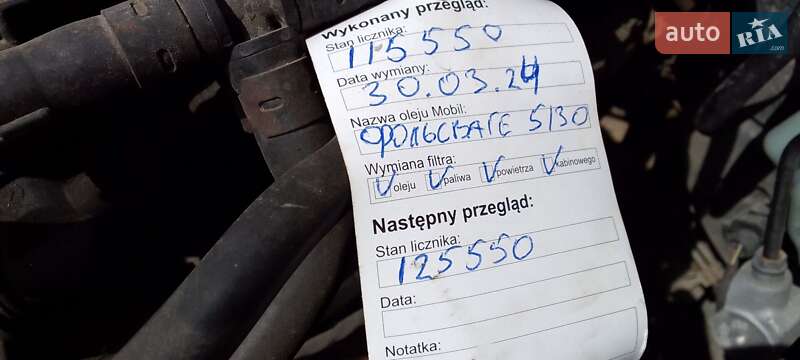 Wykonany przegląd:
Stan licznika:
115550
Data wymiany:
30.03.24
Nazwa oleju Mobil:
ФОЛЬСВАГЕ 5/30
Wymiana filtra:
V oleju V paliwa V powietrza V kabinowego
Następny przegląd:
Stan licznika:
125550
Data:
Notatka:
auto RIA.com